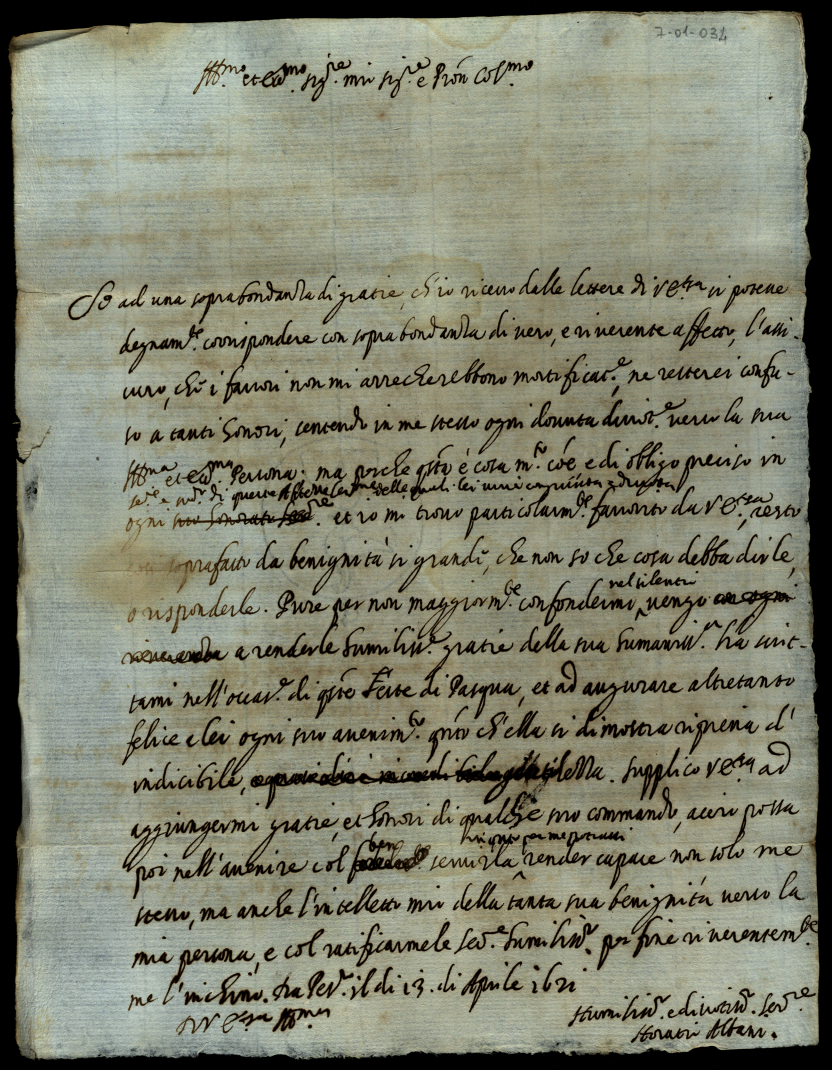 7-01-034
Ill.mo et Ecc.mo sig.re mio sig.re e Pron Col.mo
Se ad una soprabondanza di gratie, ch'io ricevo dalle lettere di V Ecc.tia si potesse
degnam.te corrispondere con soprabondanza di vero, e riverente affetto, l'assi-
curo, che i favori non mi arrecherebbono mortificat.e, ne resterei confu-
so a tanti honori, sentendo in me stesso ogni dovuta divot.e verso la sua
Ill.ma et Ecc.ma Persona. ma perche q.sta è cosa m.to co'e e di obligo preciso in
ser.e e di queste Altezze delle quali lei
ogni suo honorato ser.re et io mi trovo particolarm.te favorito da V Ecc.tia, resto
soprafatto da benignità si grande, che non so che cosa debba dirle,
nel silentio
o risponderle. Pure per non maggiorm.te confondermi, vengo con ogni
riverenza a renderle humiliss.e gratie della sua humaniss.a ha scrit-
tami nell'occas.e di q.ste Feste di Pasqua, et ad augurare altretanto
felice a lei ogni suo avenim.to q.nto ch'ella si dimostra ripiena d'
indicibile, gentilezza. supplico V Ecc.tia ad
aggiungermi gratie, et honori di qualche suo commando, acciò possa
ben
poi nell'avenire col servirla render capace non solo me
stesso, ma anche l'intelletto mio della tanta sua benignità verso la
mia persona, e col ratificarmele Ser.e humiliss.o per fine riverentem.te
me l'inchino. Da Pes.o il di 13. di Aprile 1621
Di V Ecc.tia Ill.ma
Humiliss.o e divotiss.o Ser.re
Horatio Albani.